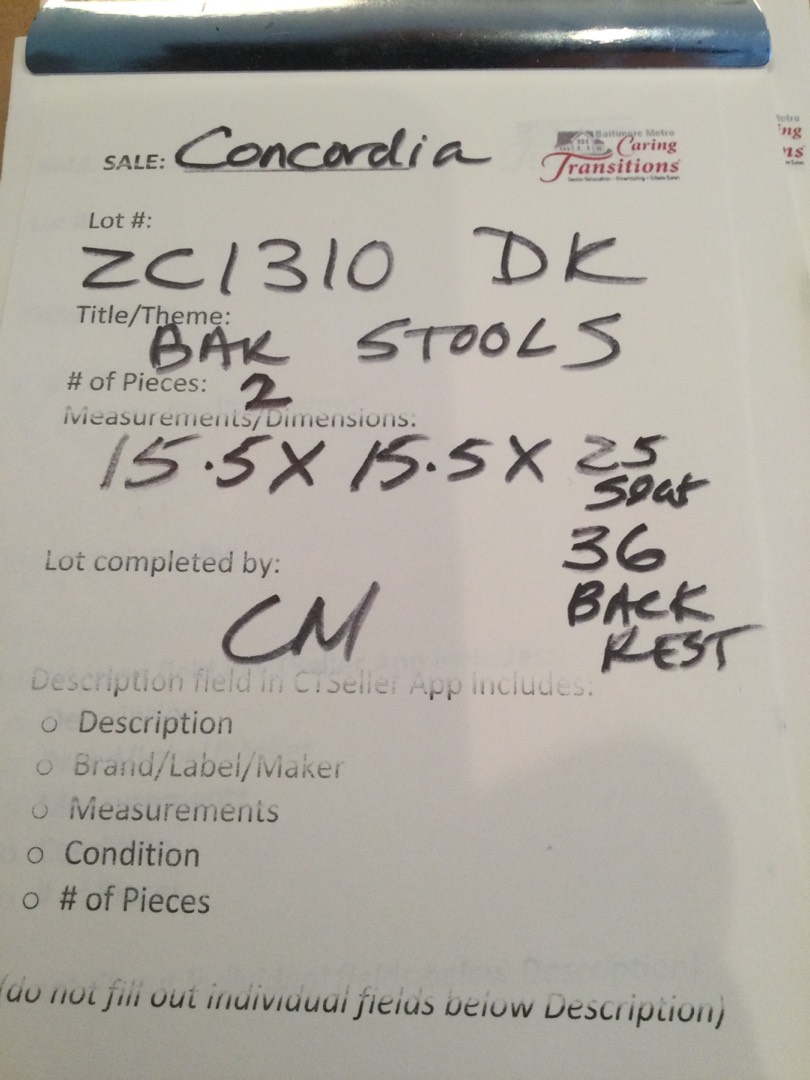 SALE: Concordia
Baltimore Metro
Caring
Transitions
Lot #:
ZC1310 DK
Title/Theme:
BAR STOOLS
# of Pieces: 2
Measurements/Dimensions:
15.5 X 15.5 X 25
Seat
36
BACK
REST
Lot completed by:
CM
Description field in CTSeller App includes:
o Description
o Brand/Label/Maker
o Measurements
o Condition
o # of Pieces
(do not fill out individual fields below Description)